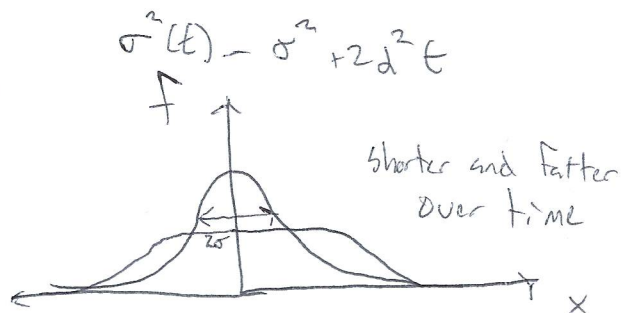 σ²(t) = σ² + 2d²t
f
shorter and fatter
over time
2σ
x